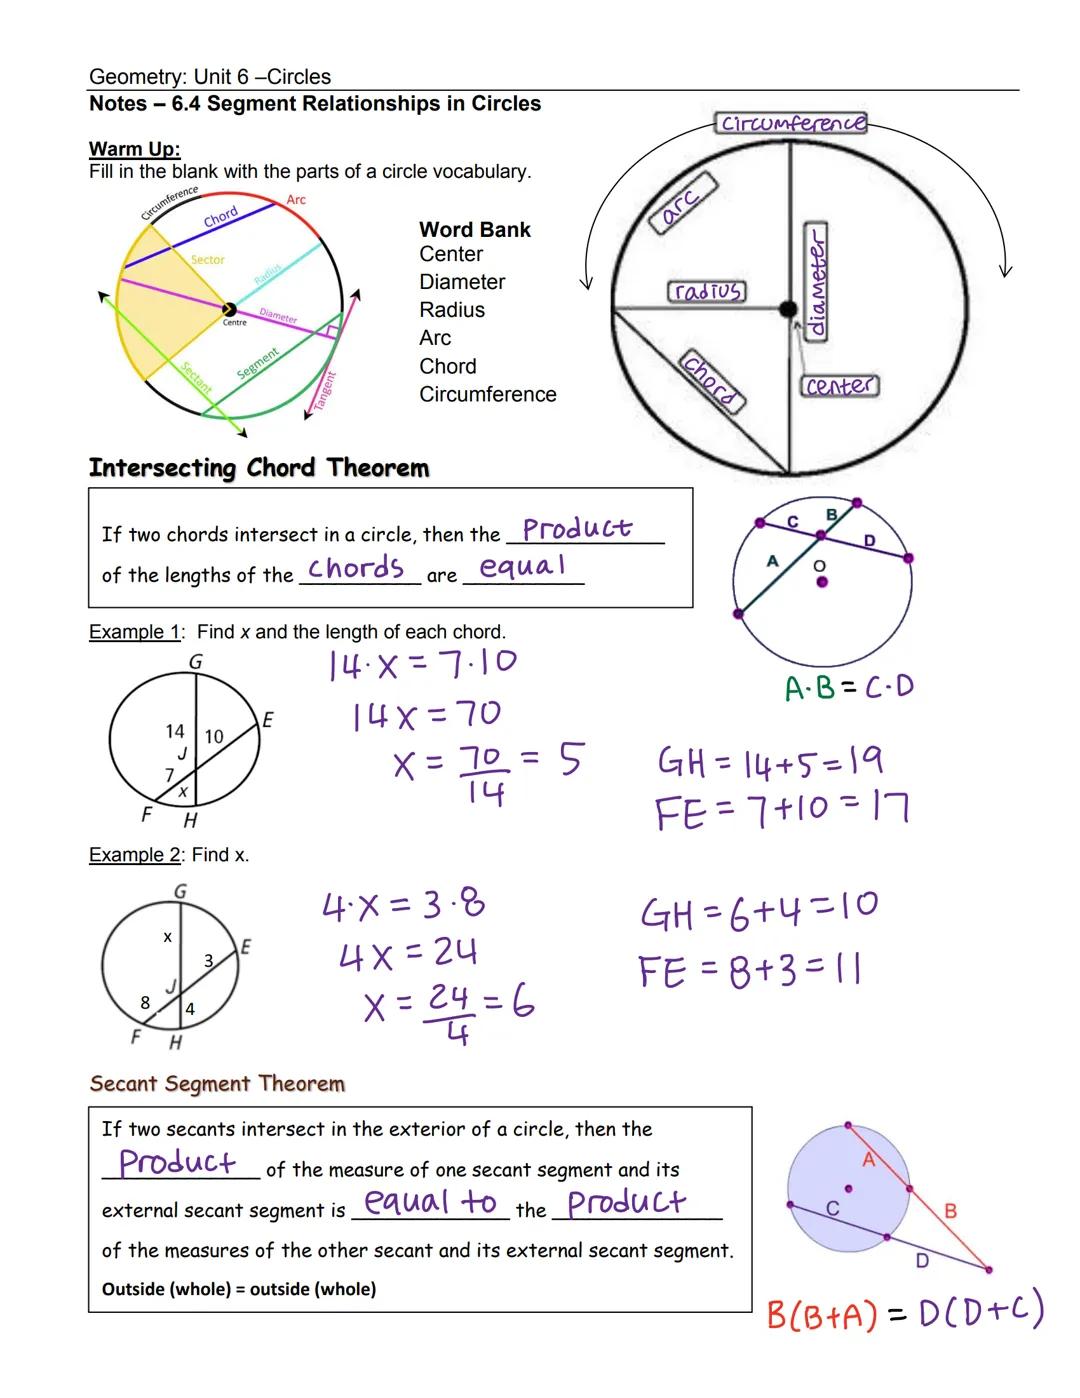 Geometry: Unit 6 –Circles
Notes – 6.4 Segment Relationships in Circles
Warm Up:
Fill in the blank with the parts of a circle vocabulary.
Circumference
Chord
Arc
Sector
Radius
Diameter
Centre
Segment
Sectant
Tangent
Word Bank
Center
Diameter
Radius
Arc
Chord
Circumference
circumference
arc
radius
diameter
chord
center
Intersecting Chord Theorem
If two chords intersect in a circle, then the Product
of the lengths of the chords are equal
C B
A D
O
A·B = C·D
Example 1: Find x and the length of each chord.
G
E
14 10
J
7
x
F H
14·x = 7·10
14x = 70
x = 70/14 = 5
GH = 14+5=19
FE = 7+10 = 17
Example 2: Find x.
G
x
E
3
J
8 4
F H
4·x = 3·8
4x = 24
x = 24/4 = 6
GH = 6+4=10
FE = 8+3=11
Secant Segment Theorem
If two secants intersect in the exterior of a circle, then the
Product of the measure of one secant segment and its
external secant segment is equal to the Product
of the measures of the other secant and its external secant segment.
Outside (whole) = outside (whole)
A
C B
D
B(B+A) = D(D+C)